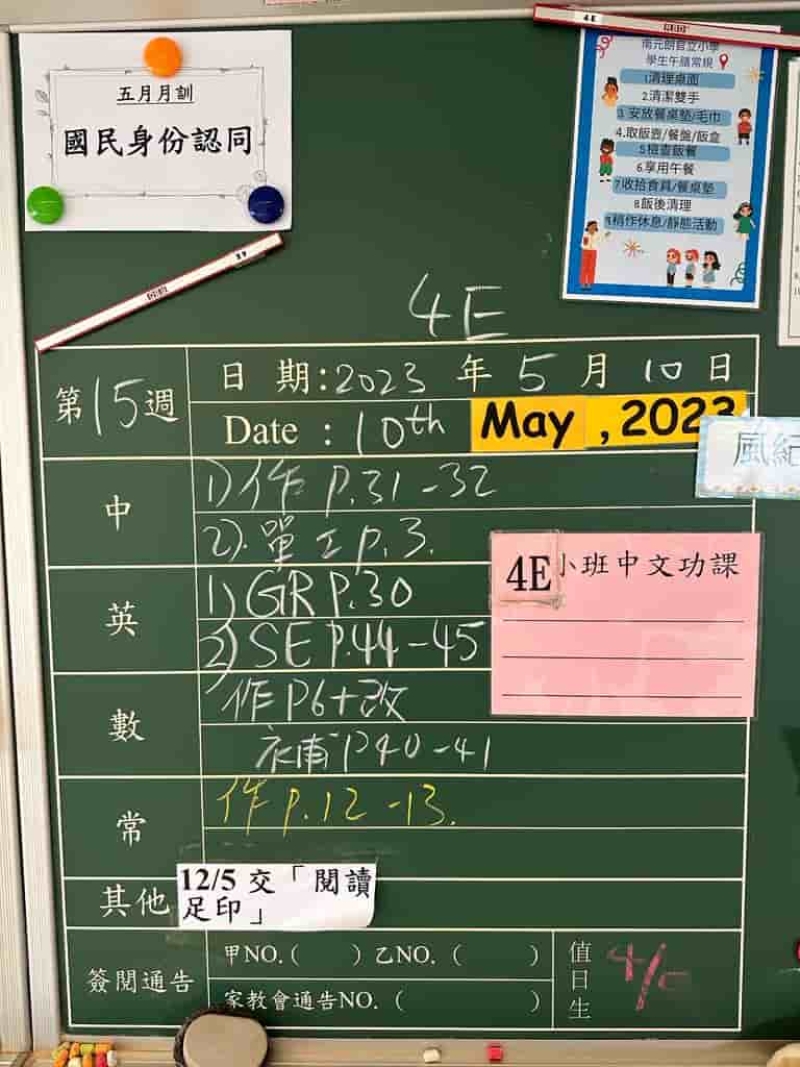 五月月訓
國民身份認同
4E
南元朗官立小學
學生午膳常規
1清理桌面
2.清潔雙手
3.安放餐桌墊/毛巾
4.取飯壺/餐盤/飯盒
5檢查飯餐
6.享用午餐
7收拾食具/餐桌墊
8.飯後清理
9.稍作休息/靜態活動
4E
第15週
日 期:2023 年 5 月 10 日
Date : 10th May , 2023
風紀
中
1)作 P.31-32
2).單工 p.3.
4E小班中文功課
英
1) GR P.30
2) SE P.44-45
數
作P6+改
補P40-41
常
作 p.12-13.
其他
12/5 交「閱讀
足印」
簽閱通告
甲NO.( )乙NO.( )
家教會通告NO.( )
值日生